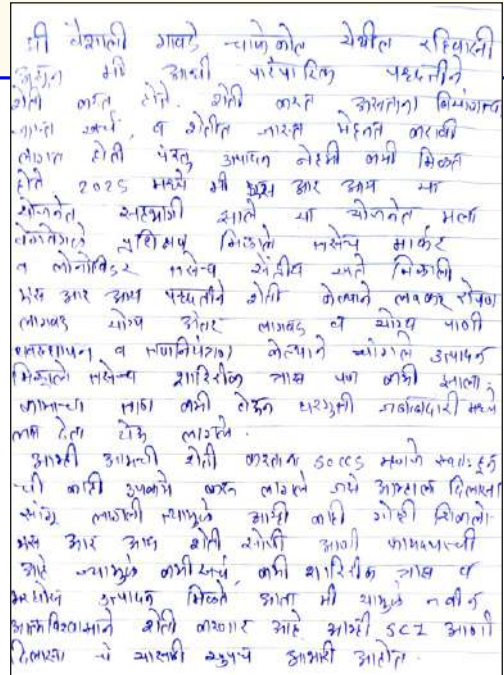 मी वैशाली गावडे, चाफेकोल येथील रहिवासी
असून मी आधी पारंपारिक पध्दतीने
शेती करत होते. शेती करत असताना बियाणाला
जास्त खर्च, व शेतीत जास्त मेहनत करावी
लागत होती परंतु उत्पादन नेहमी कमी मिळत
होते 2025 मध्ये मी एस आर आय या
योजनेत सहभागी झाले या योजनेत मला
वेगवेगळे प्रशिक्षण मिळाले तसेच मार्कर
व कोनोविडर तसेच सेंद्रीय खते मिळाली
एस आर आय पध्दतीने शेती केल्याने लवकर रोपण
लागवड योग्य अंतर लागवड व योग्य पाणी
व्यवस्थापन व तणनियंत्रण केल्याने चांगले उत्पादन
मिळाले तसेच शारिरीक त्रास पण कमी झाला.
कामाचा ताण कमी होऊन घरगुती जबाबदारी मध्ये
लक्ष देता येऊ लागले.
आम्ही आमची शेती करताना SOCCS म्हणजे स्वतःहून
ची काही उपक्रमे करू लागले जसे आम्हाला दिलासा
सांगू लागली त्यामुळे आम्ही काही गोष्टी शिकलो.
एस आर आय शेती सोपी आणी फायद्याची
आहे ज्यामुळे कमी खर्च, कमी शारिरीक त्रास व
भरघोस उत्पादन मिळते आता मी यामुळे नवीन
आत्मविश्वासाने शेती करणार आहे आम्ही SCI आणी
दिलासा चे यासाठी खुपच आभारी आहोत.